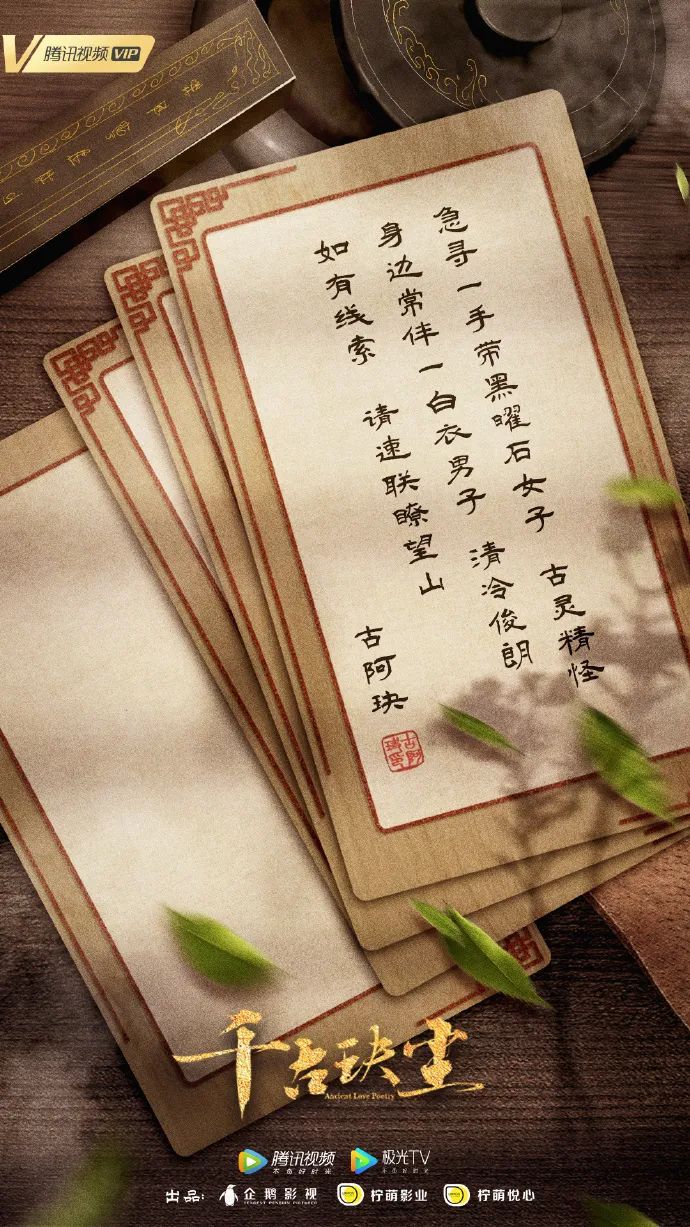 腾讯视频 VIP
急寻一手带黑曜石女子 古灵精怪
身边常伴一白衣男子 清冷俊朗
如有线索 请速联瞭望山
古阿玦
千古玦尘
Ancient Love Poetry
腾讯视频 极光TV
不负好时光 不负好时光
出品: 企鹅影视 柠萌影业 柠萌悦心
TENCENT PENGUIN PICTURES